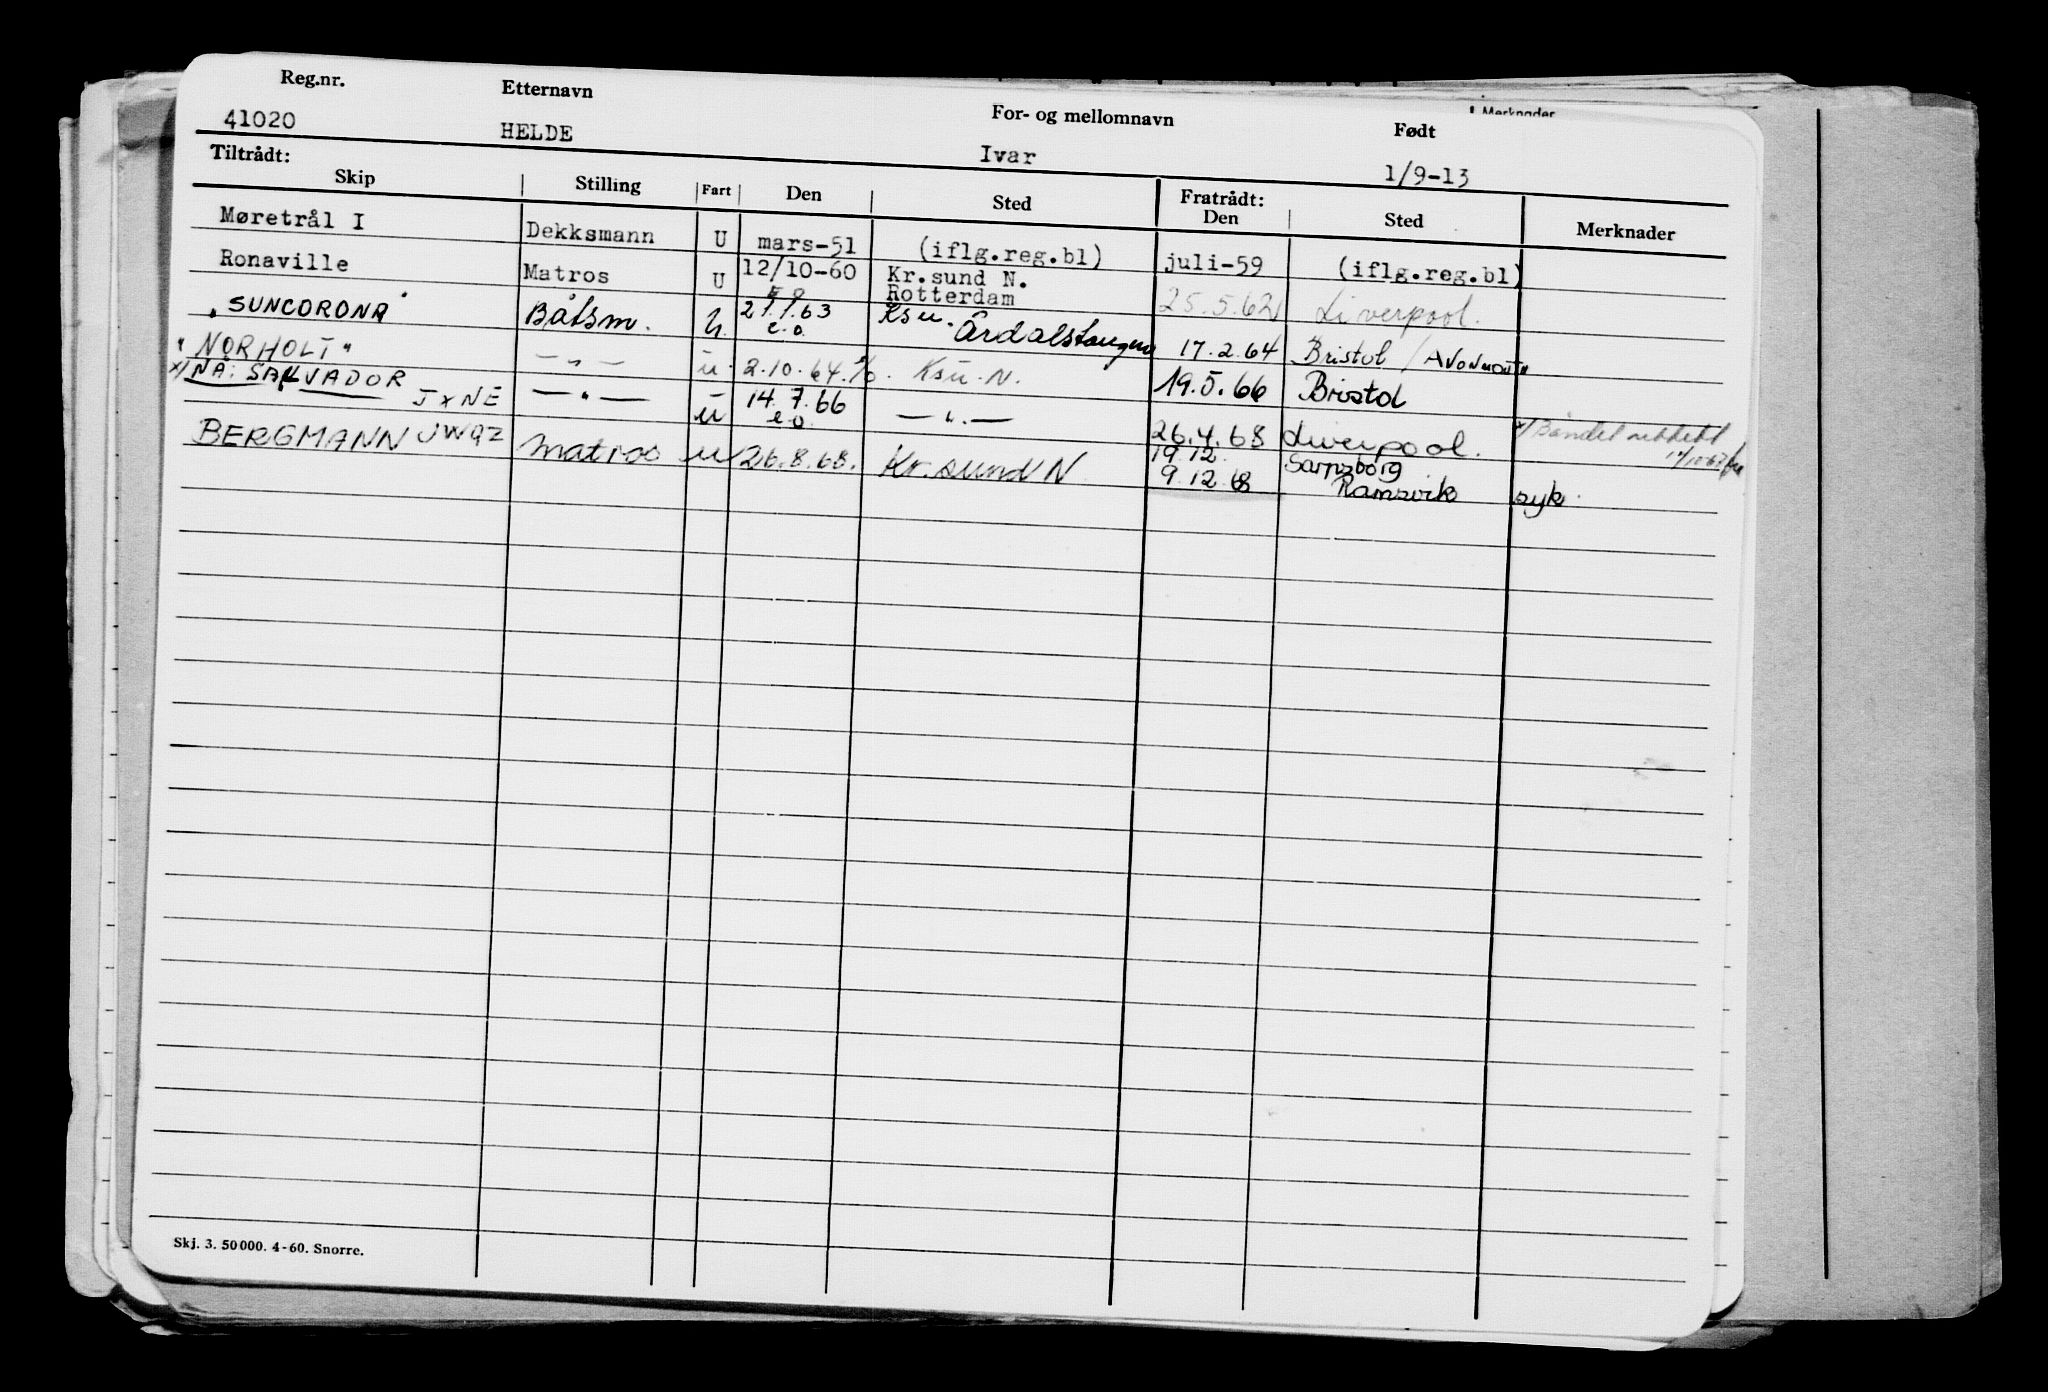 Reg.nr. Etternavn For- og mellomnavn Født
Merknader
41020 HELDE Ivar 1/9-13
Tiltrådt: Fratrådt:
Skip Stilling Fart Den Sted Den Sted Merknader
Møretrål I Dekksmann U mars-51 (iflg.reg.bl) juli-59 (iflg.reg.bl)
Ronaville Matros U 12/10-60 Kr.sund N. 25.5.62 Liverpool.
Rotterdam
"SUNCORONA" Båtsm. U. 63 Ksu. Årdalstangen 17.2.64 Bristol / AVONMOUTH
e.o.
"NORHOLT" — " — u. 2.10.64. Ksu. N. 19.5.66 Bristol
x/ NÅ: SALVADOR JXNE — " — u 14.7.66 — " — 26.4.68 Liverpool. x/
e.o.
BERGMANN JWQZ matros u 26.8.68. Kr.sund N 19.12. Sarpsborg
9.12.68 Ramsvik syk.
Skj. 3. 50000. 4-60. Snorre.